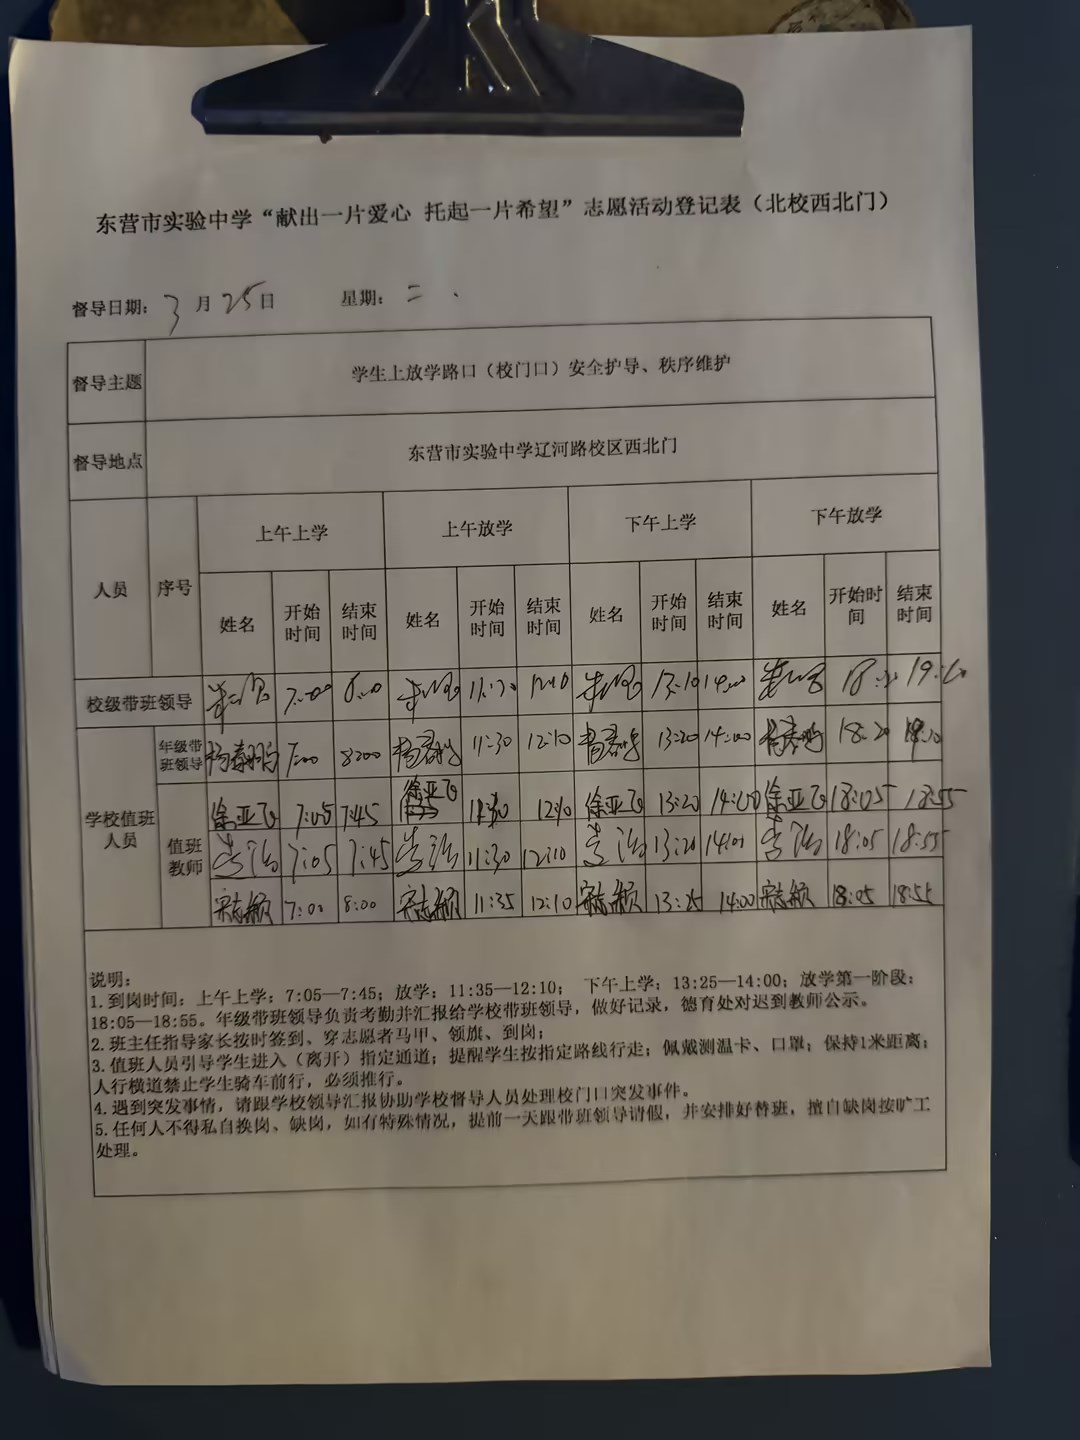 东营市实验中学“献出一片爱心 托起一片希望”志愿活动登记表（北校西北门）
督导日期： 3 月 25 日 星期： 二
督导主题 学生上放学路口（校门口）安全护导、秩序维护
督导地点 东营市实验中学辽河路校区西北门
人员 序号 上午上学 上午放学 下午上学 下午放学
姓名 开始时间 结束时间 姓名 开始时间 结束时间 姓名 开始时间 结束时间 姓名 开始时间 结束时间
校级带班领导 7:00 8:00 12:10 13:10 14:00
学校值班人员
年级带班领导 7:00 8:00 11:30 12:10 13:20 14:00 18:20
值班教师
徐亚飞 7:05 7:45 徐亚飞 12:10 徐亚飞 13:20 14:00 徐亚飞 18:05 18:55
7:05 7:45 11:30 12:10 13:20 14:00 18:05 18:55
宋志颖 7:00 8:00 宋志颖 11:35 12:10 宋志颖 13:25 14:00 宋志颖 18:05 18:55
说明：
1. 到岗时间：上午上学：7:05—7:45；放学：11:35—12:10； 下午上学：13:25—14:00；放学第一阶段：
18:05—18:55。年级带班领导负责考勤并汇报给学校带班领导，做好记录，德育处对迟到教师公示。
2. 班主任指导家长按时签到、穿志愿者马甲、领旗、到岗；
3. 值班人员引导学生进入（离开）指定通道；提醒学生按指定路线行走；佩戴测温卡、口罩；保持1米距离；
人行横道禁止学生骑车前行，必须推行。
4. 遇到突发事情，请跟学校领导汇报协助学校督导人员处理校门口突发事件。
5. 任何人不得私自换岗、缺岗，如有特殊情况，提前一天跟带班领导请假，并安排好替班，擅自缺岗按旷工
处理。